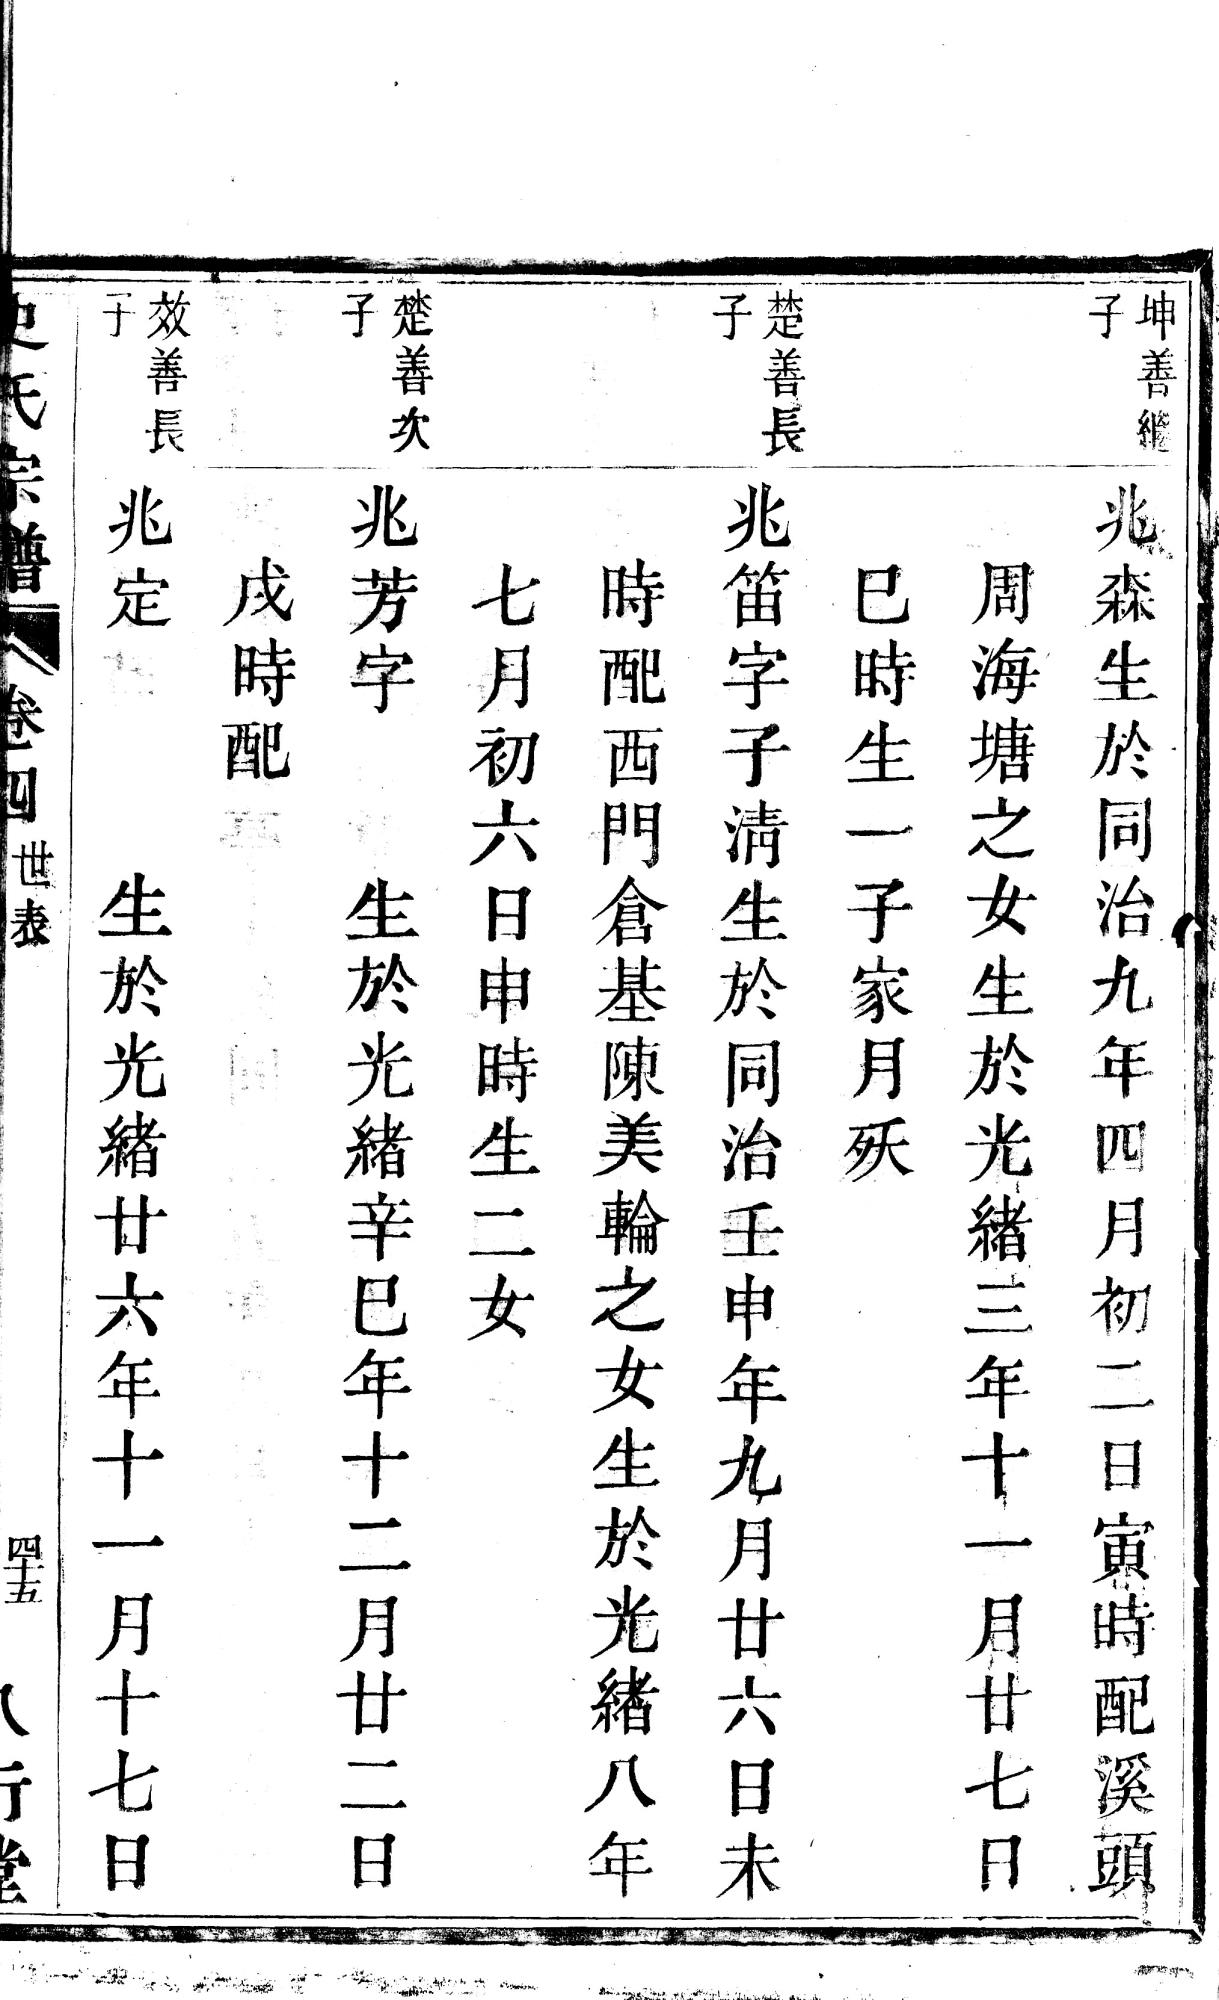 坤善繼
子
兆森生於同治九年四月初二日寅時配溪頭
周海塘之女生於光緒三年十一月廿七日
巳時生一子家月殀
楚善長
子
兆笛字子淸生於同治壬申年九月廿六日未
時配西門倉基陳美輪之女生於光緒八年
七月初六日申時生二女
楚善次
子
兆芳字　　生於光緒辛巳年十二月廿二日
戌時配
效善長
子
兆定　　　生於光緒廿六年十一月十七日
史氏宗譜
卷四
世表
四十五
八行堂